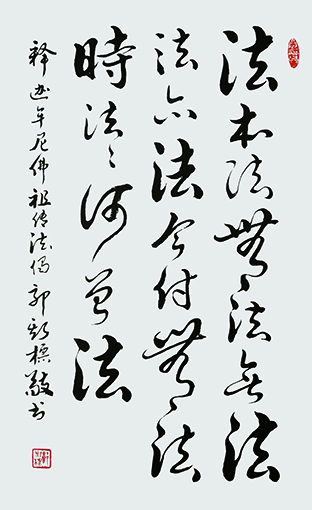 法本法無法无法
法亦法今付無法
時法々何曾法
释迦牟尼佛祖传法偈 郭標敬书